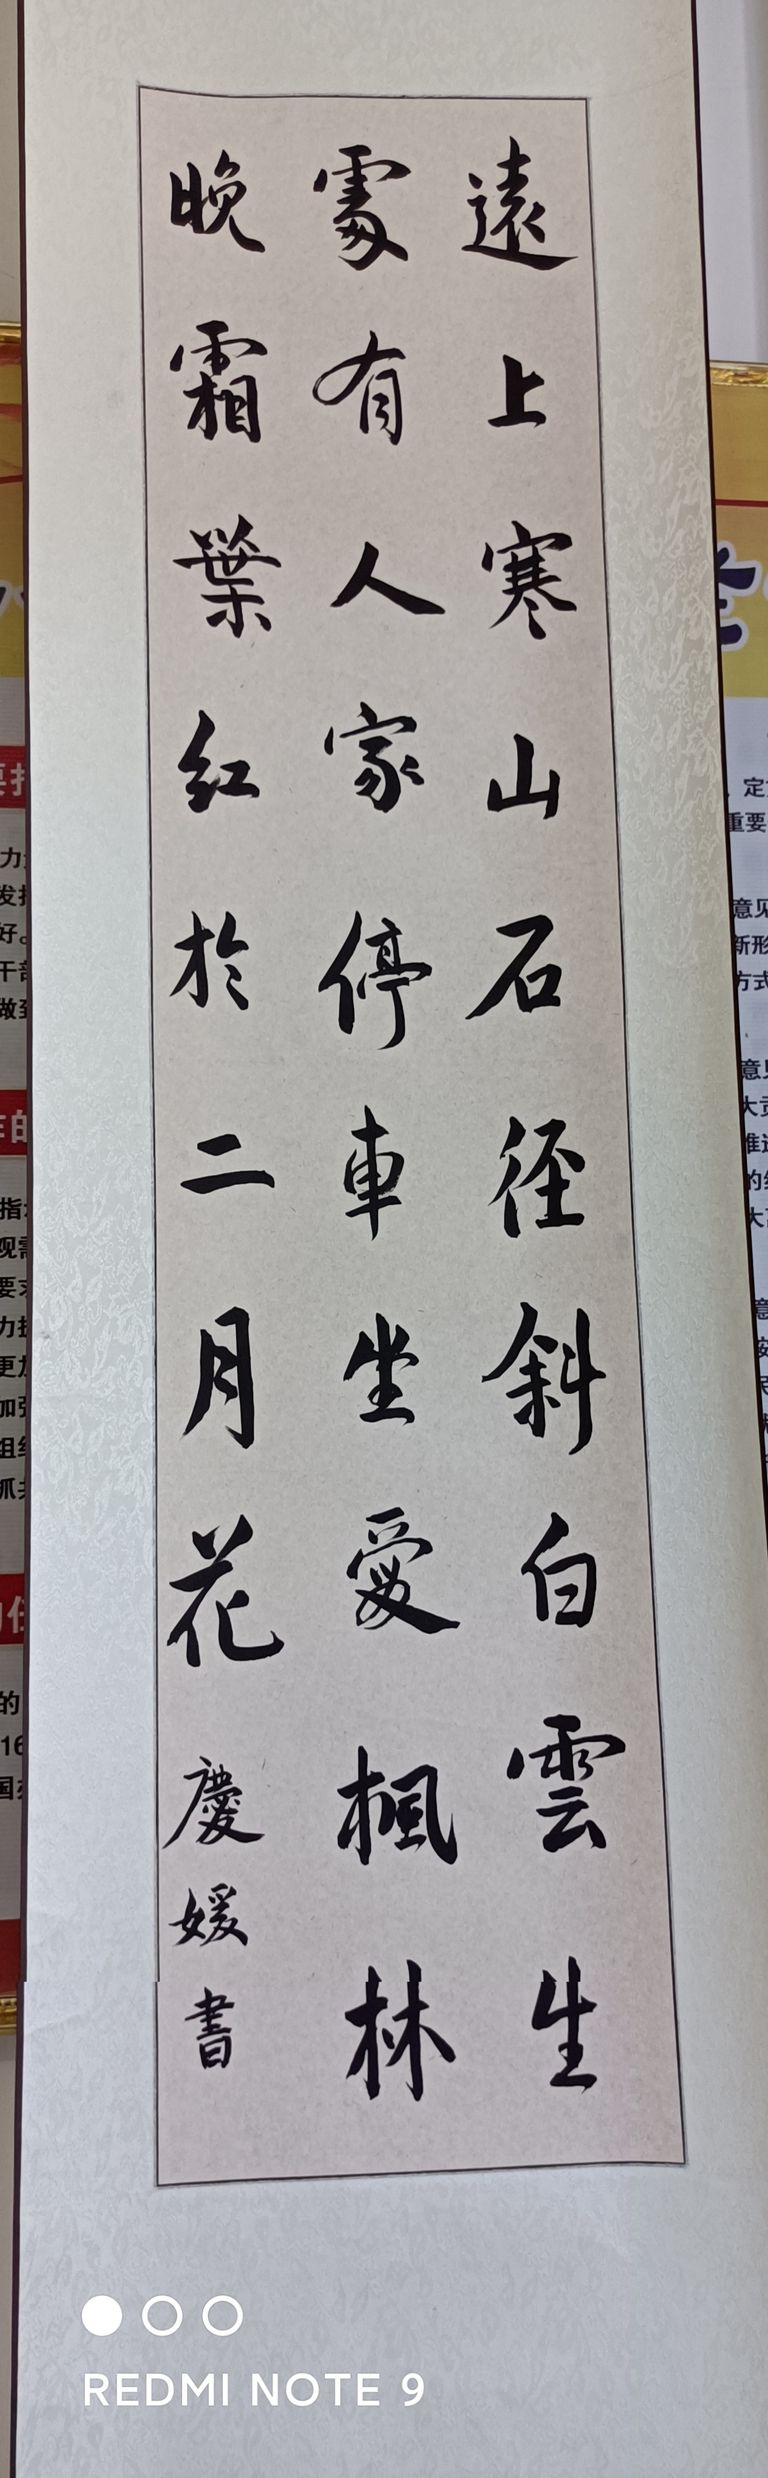 遠上寒山石径斜白雲生
處有人家停車坐愛楓林
晚霜葉红於二月花
慶媛書
REDMI NOTE 9